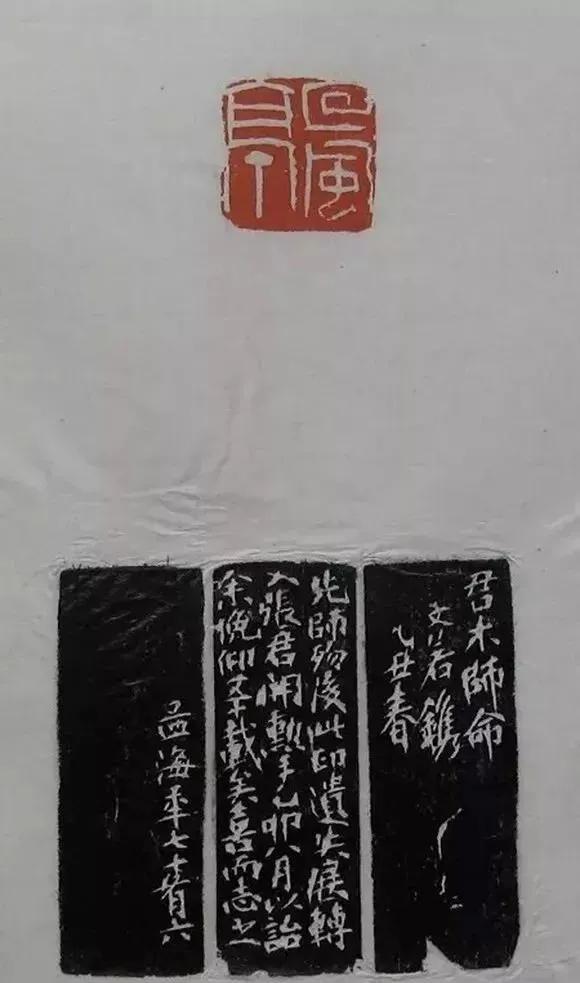 回風亭
君木師命
文若鐫
乙丑春
先師歿後此印遺失展轉
入張君開勳手乙卯八月以詒
余俛仰五十載矣喜而志之
孟海年七十有六